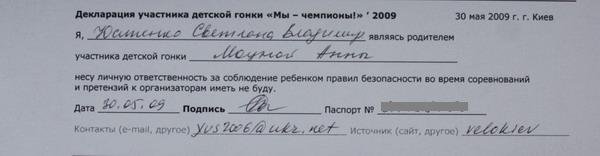 Декларация участника детской гонки «Мы – чемпионы!» ' 2009 30 мая 2009 г. г. Киев
Я, Светлана Владимир являясь родителем
участника детской гонки Анны
несу личную ответственность за соблюдение ребенком правил безопасности во время соревнований
и претензий к организаторам иметь не буду.
Дата 30.05.09 Подпись Паспорт №
Контакты (e-mail, другое) yus2006@ukr.net Источник (сайт, другое) velokiev